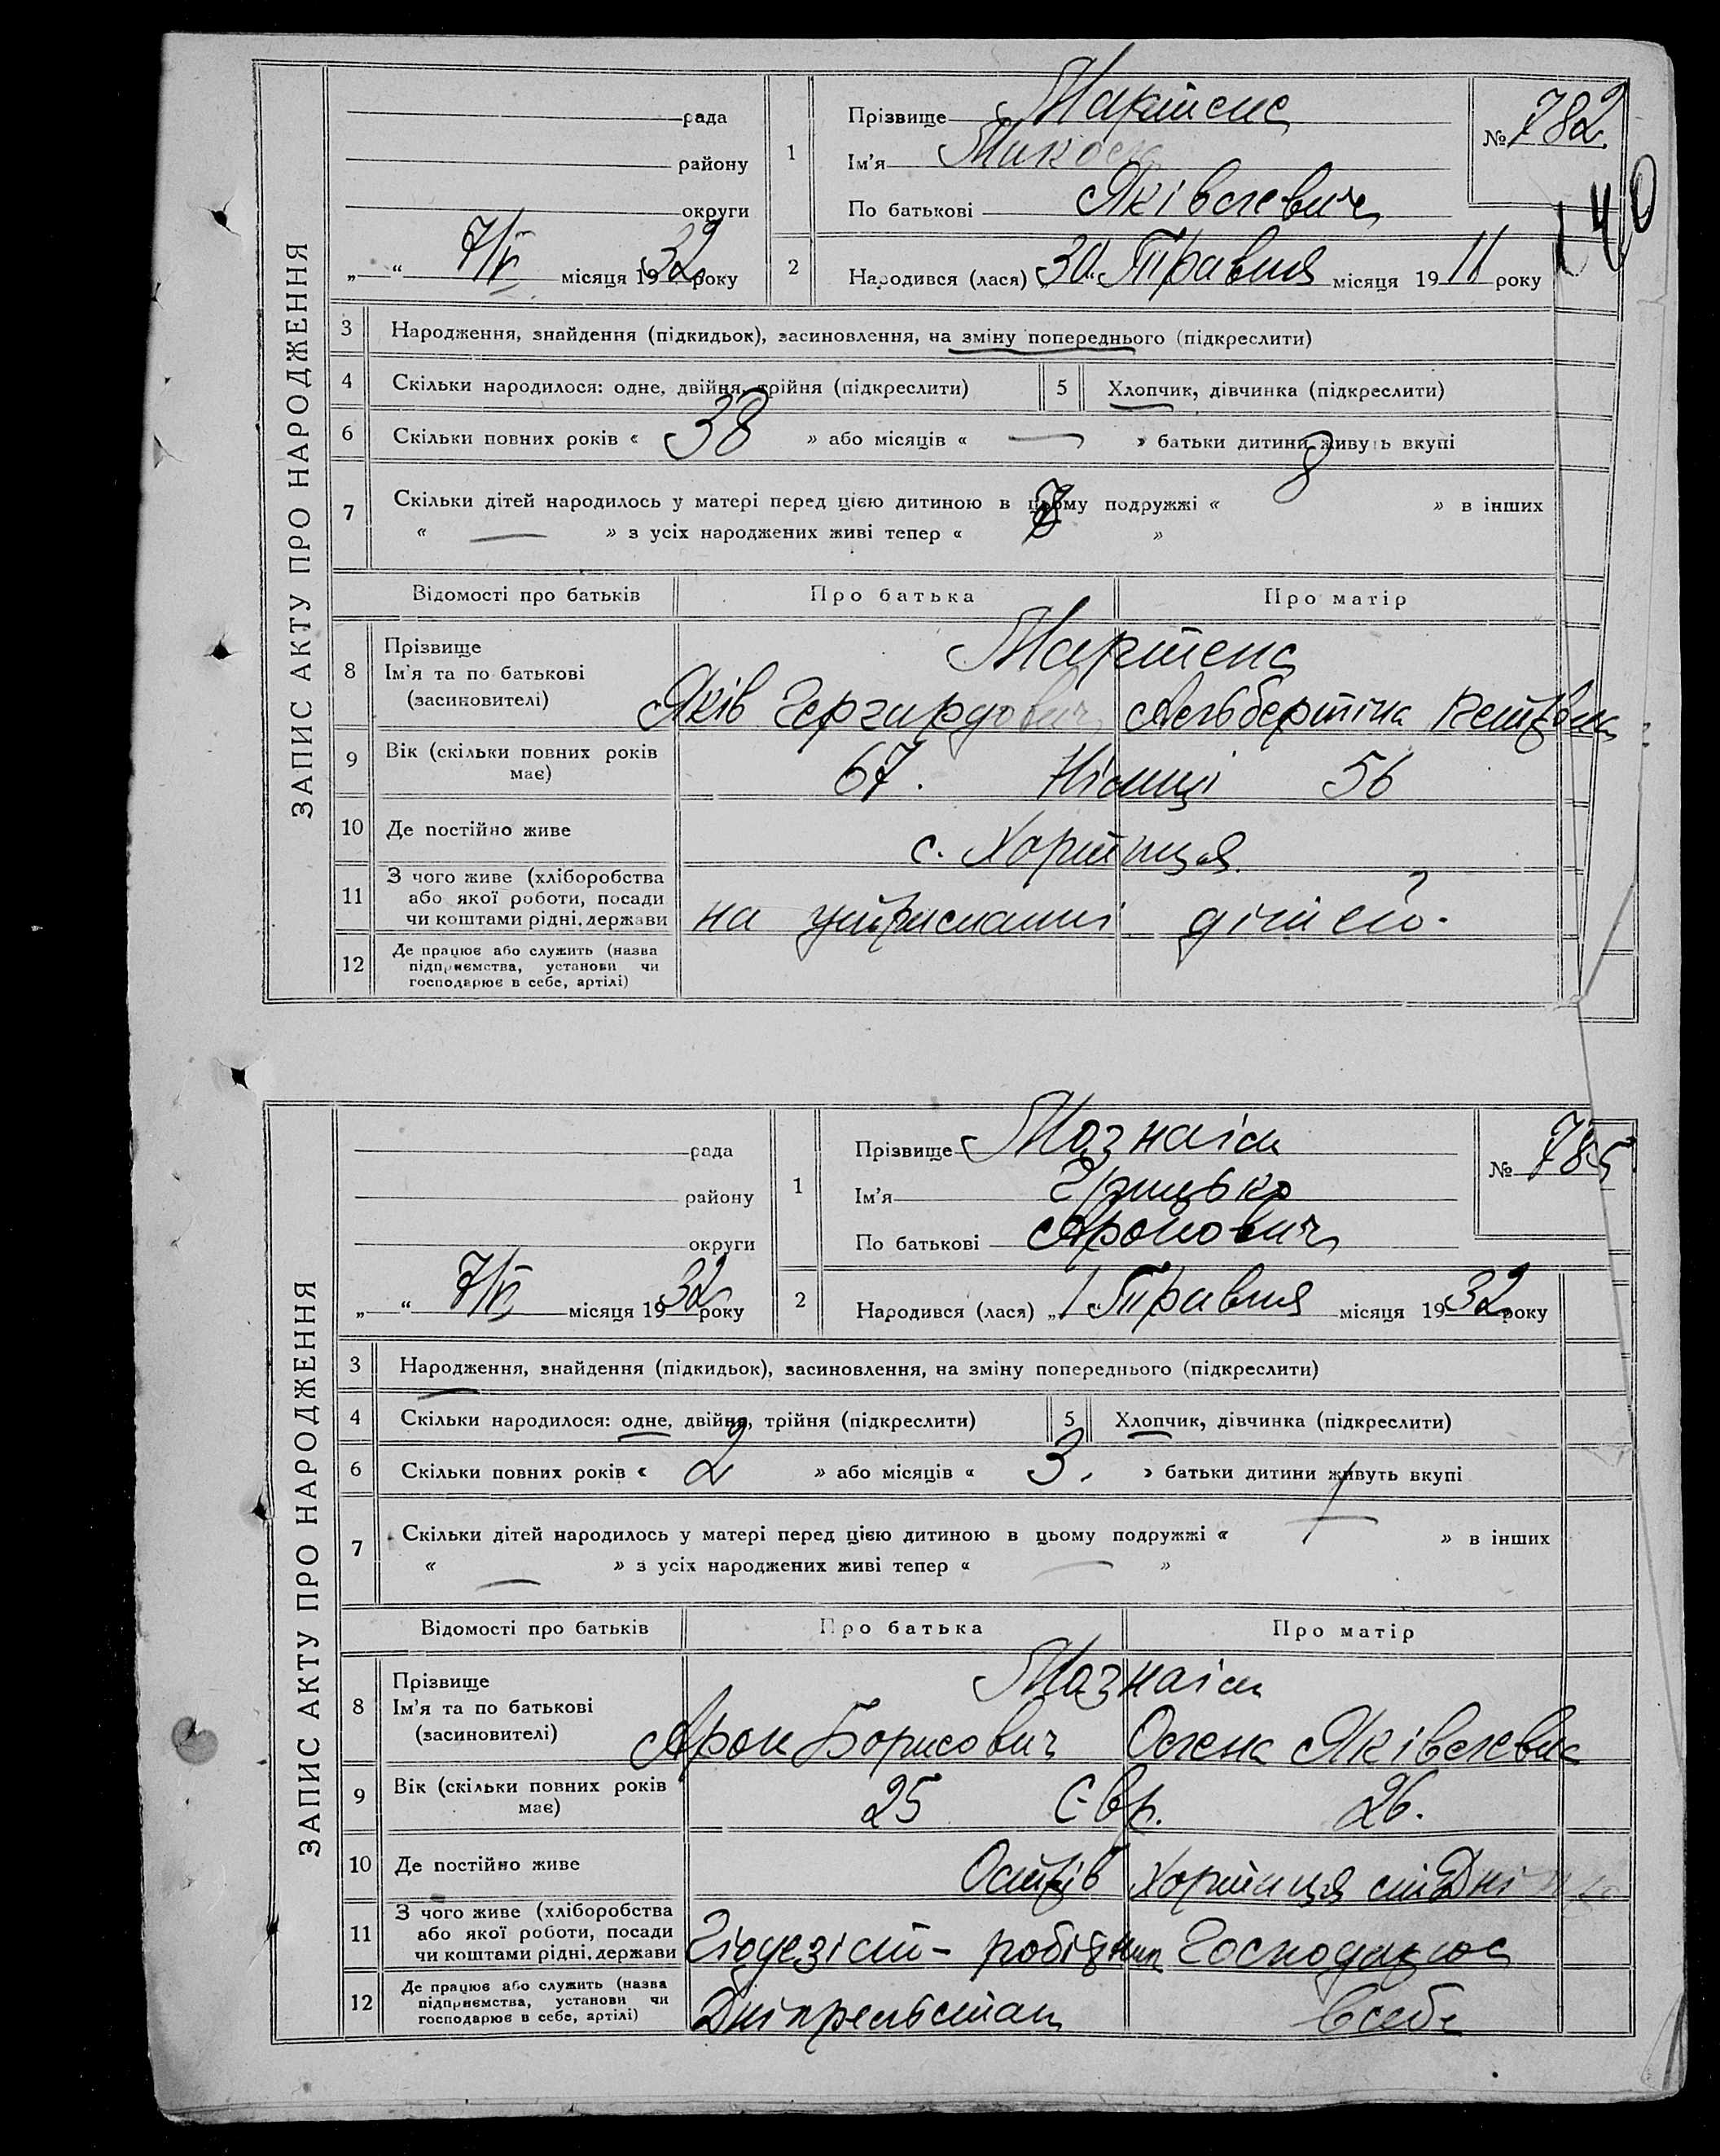 ЗАПИС АКТУ ПРО НАРОДЖЕННЯ
рада
району
округи
„ “ 7/V місяця 1932 року
1
Прізвище Мартенс
Ім'я Микола
По батькові Яківлевич
№ 782.
140
2
Народився (лася) „30 Травня місяця 1911 року
3 Народження, знайдення (підкидьок), засиновлення, на зміну попереднього (підкреслити)
4 Скільки народилося: одне, двійня, трійня (підкреслити)
5 Хлопчик, дівчинка (підкреслити)
6 Скільки повних років « 38 » або місяців « — » батьки дитини живуть вкупі
7 Скільки дітей народилось у матері перед цією дитиною в цьому подружжі « 8 » в інших
« — » з усіх народжених живі тепер « »
Відомості про батьків Про батька Про матір
8 Прізвище
Ім'я та по батькові
(засиновителі)
Мартенс
Яків Гергардович Альбертіна
9 Вік (скільки повних років
має)
67. Німці 56
10 Де постійно живе
с. Хортиця
11 З чого живе (хліборобства
або якої роботи, посади
чи коштами рідні, держави
на утриманні дітей.
12 Де працює або служить (назва
підприємства, установи чи
господарює в себе, артілі)
ЗАПИС АКТУ ПРО НАРОДЖЕННЯ
рада
району
округи
„ “ 7/V місяця 1932 року
1
Прізвище Мазнаім
Ім'я Грицько
По батькові Аронович
№ 785
2
Народився (лася) „1 Травня місяця 1932 року
3 Народження, знайдення (підкидьок), засиновлення, на зміну попереднього (підкреслити)
4 Скільки народилося: одне, двійня, трійня (підкреслити)
5 Хлопчик, дівчинка (підкреслити)
6 Скільки повних років « 2 » або місяців « 3. » батьки дитини живуть вкупі
7 Скільки дітей народилось у матері перед цією дитиною в цьому подружжі « » в інших
« — » з усіх народжених живі тепер « — »
Відомості про батьків Про батька Про матір
8 Прізвище
Ім'я та по батькові
(засиновителі)
Мазнаім
Арон Борисович Олена Яківлевна
9 Вік (скільки повних років
має)
25 Євр. 26.
10 Де постійно живе
Острів Хортиця
11 З чого живе (хліборобства
або якої роботи, посади
чи коштами рідні, держави
Гіодезіст – робітник Господарює
12 Де працює або служить (назва
підприємства, установи чи
господарює в себе, артілі)
Дніпрельстан в себе